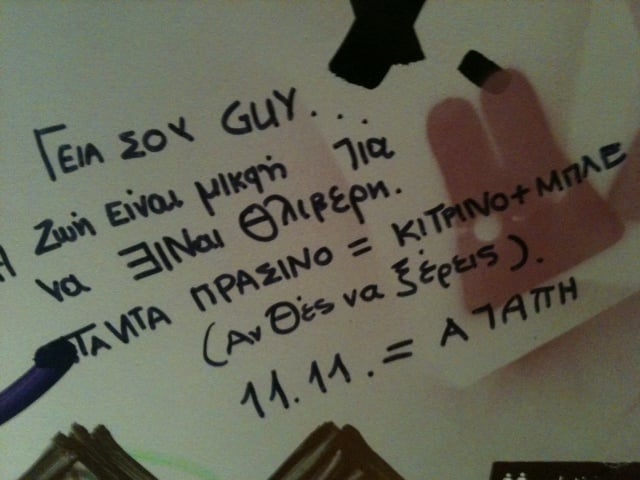 Γεια ΣΟΥ GUY...
Η Ζωή είναι μικρή για
να είναι Θλιβερη.
ΠΑΝΤΑ ΠΡΑΣΙΝΟ = ΚΙΤΡΙΝΟ + ΜΠΛΕ
(Αν Θές να ξέρεις).
11.11. = ΑΓΑΠΗ